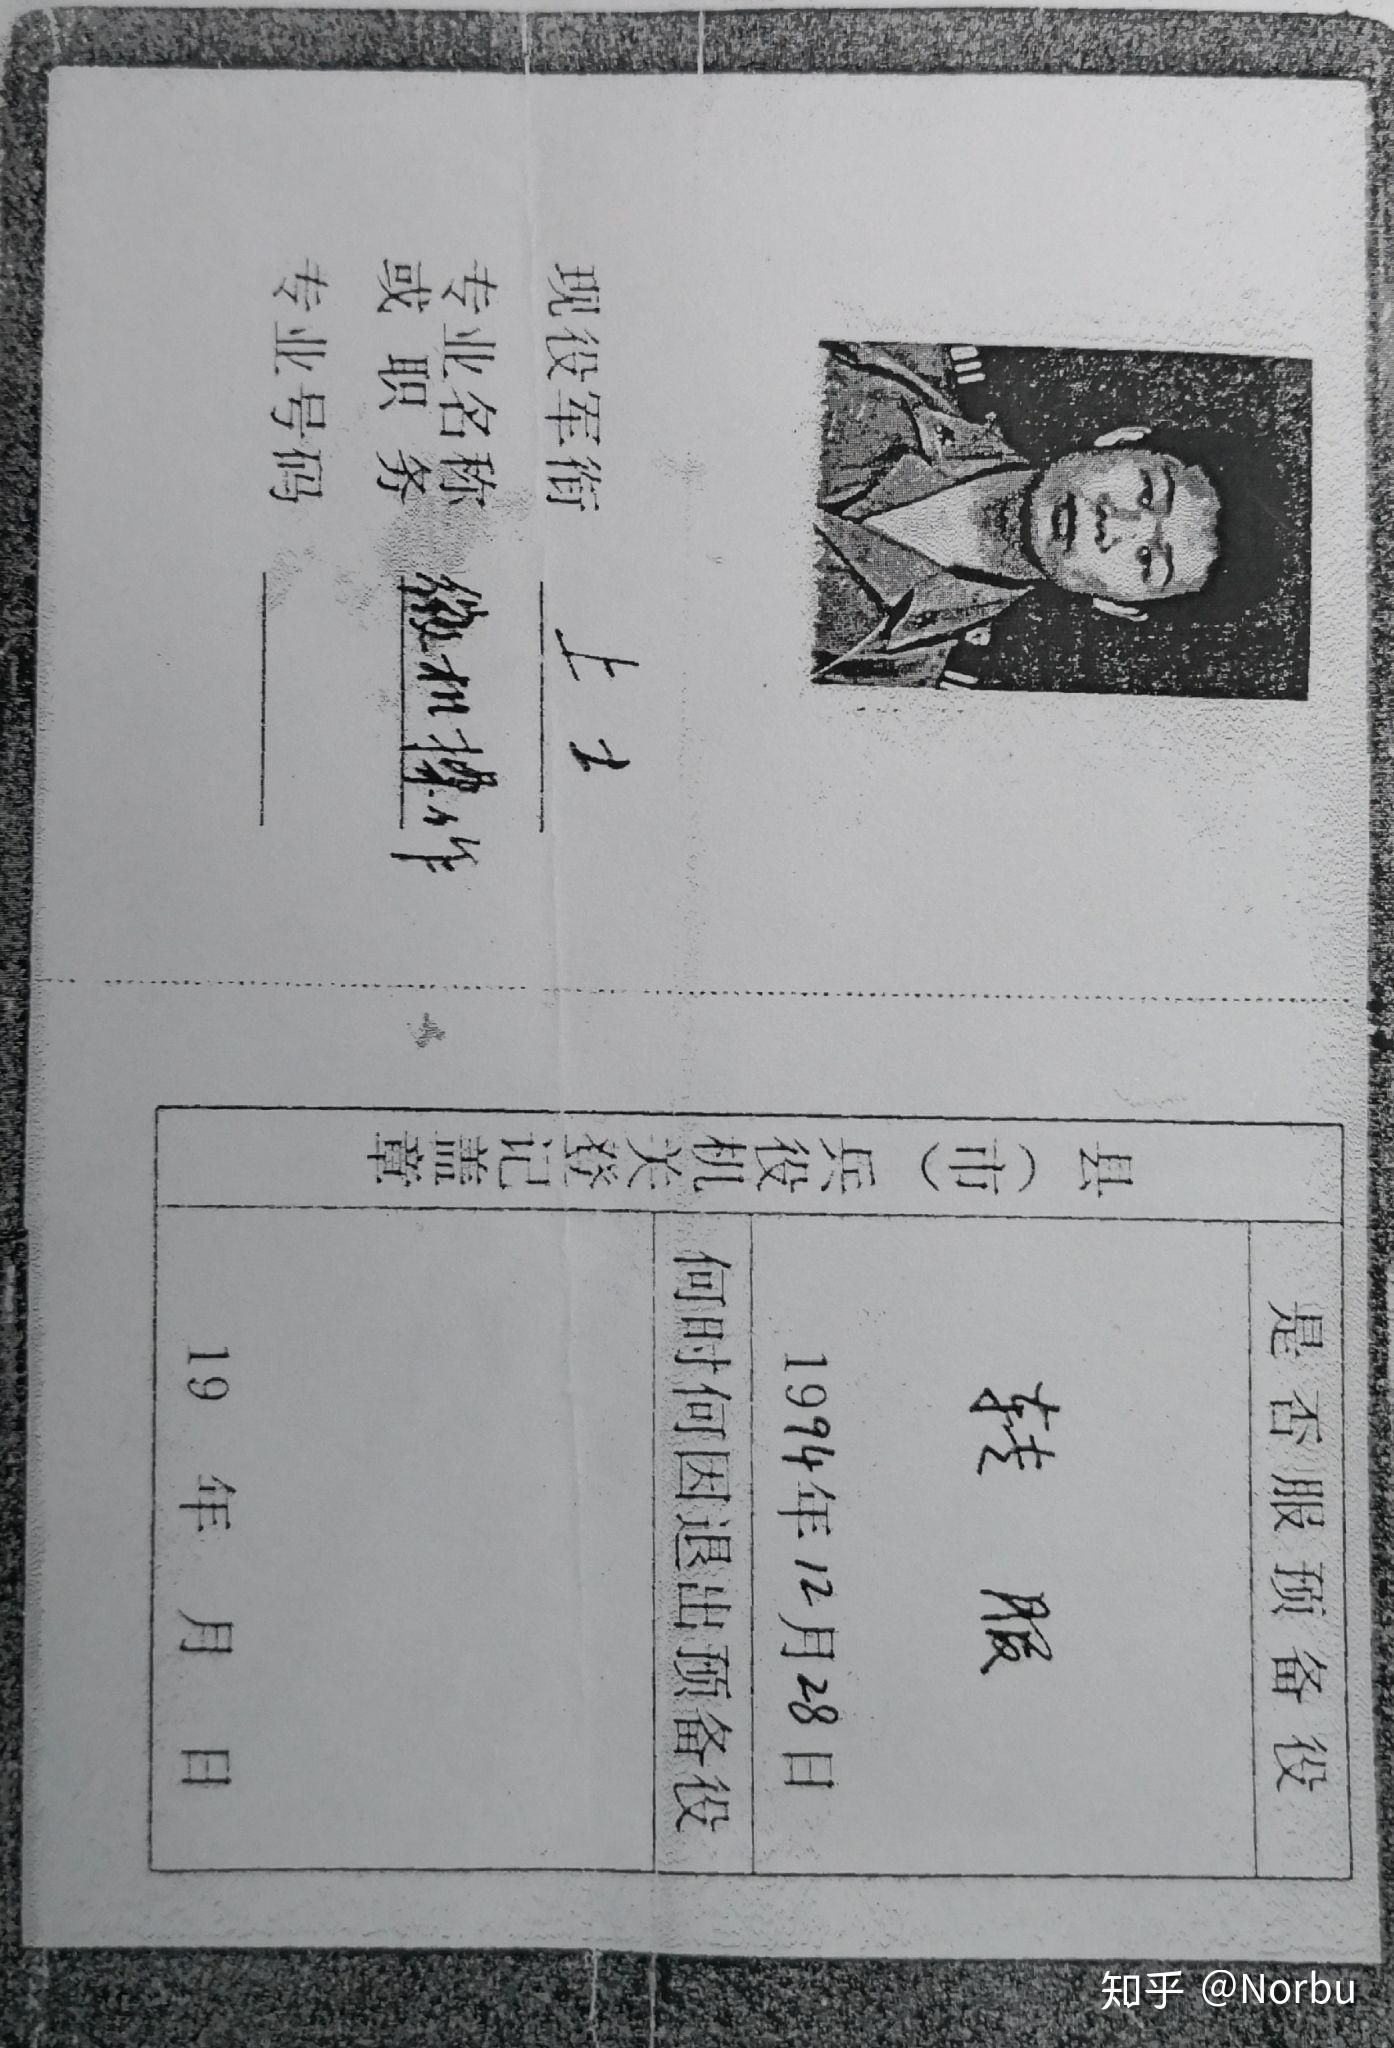 现役军衔 上士
专业名称
或职务 微机操作
专业号码
县（市）兵役机关登记盖章
是否服预备役
转服
1994年12月28日
何时何因退出预备役
19 年 月 日
知乎 @Norbu